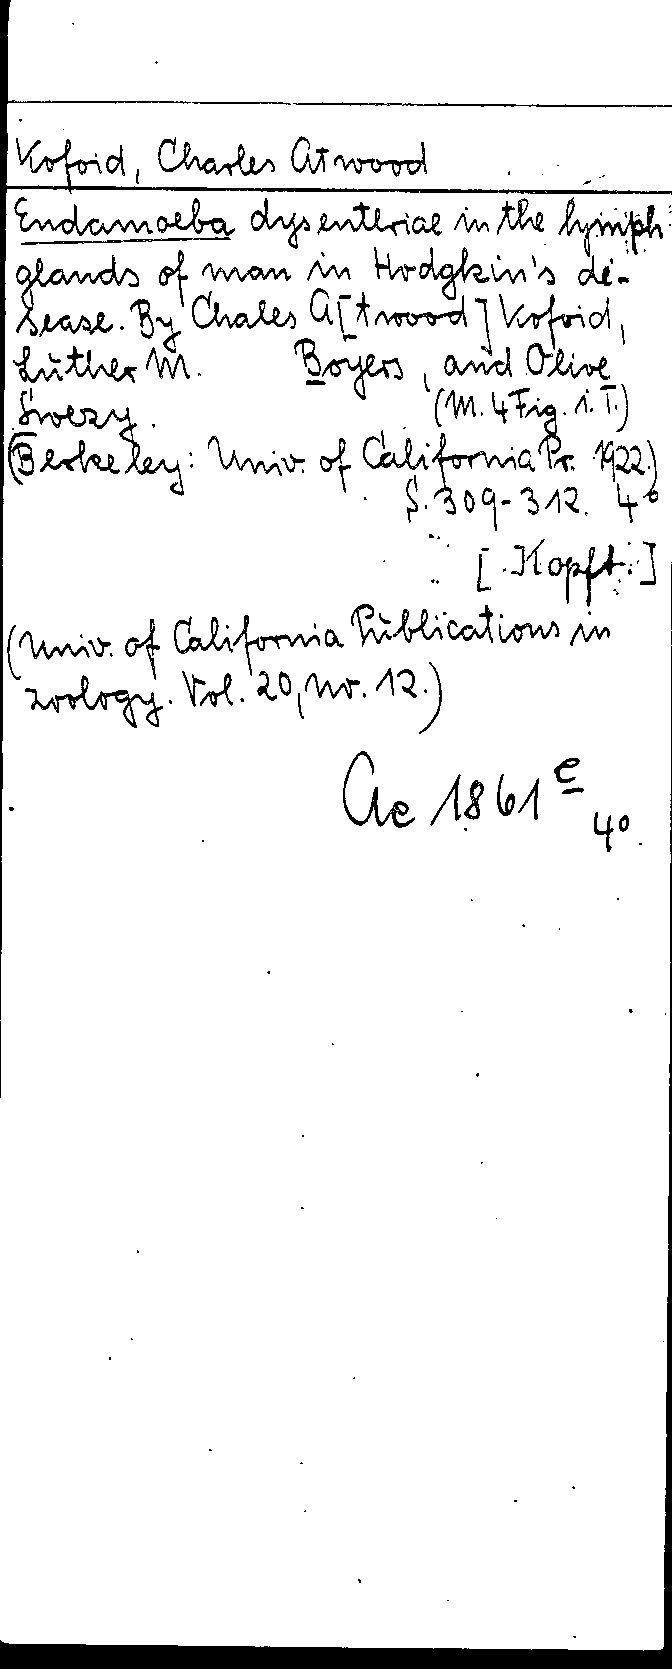 Kofoid, Charles Atwood
Endamoeba dysenteriae in the lymph
glands of man in Hodgkin's di-
sease. By Chales A[twood] Kofoid,
Luther M. Boyers, and Olive
Swezy. (M. 4 Fig. 1. T.)
(Berkeley: Univ. of California Pr. 1922.)
S. 309-312. 4°
[Kopft.]
(Univ. of California Publications in
zoology. Vol. 20, No. 12.)
Ae 1861 e
4°